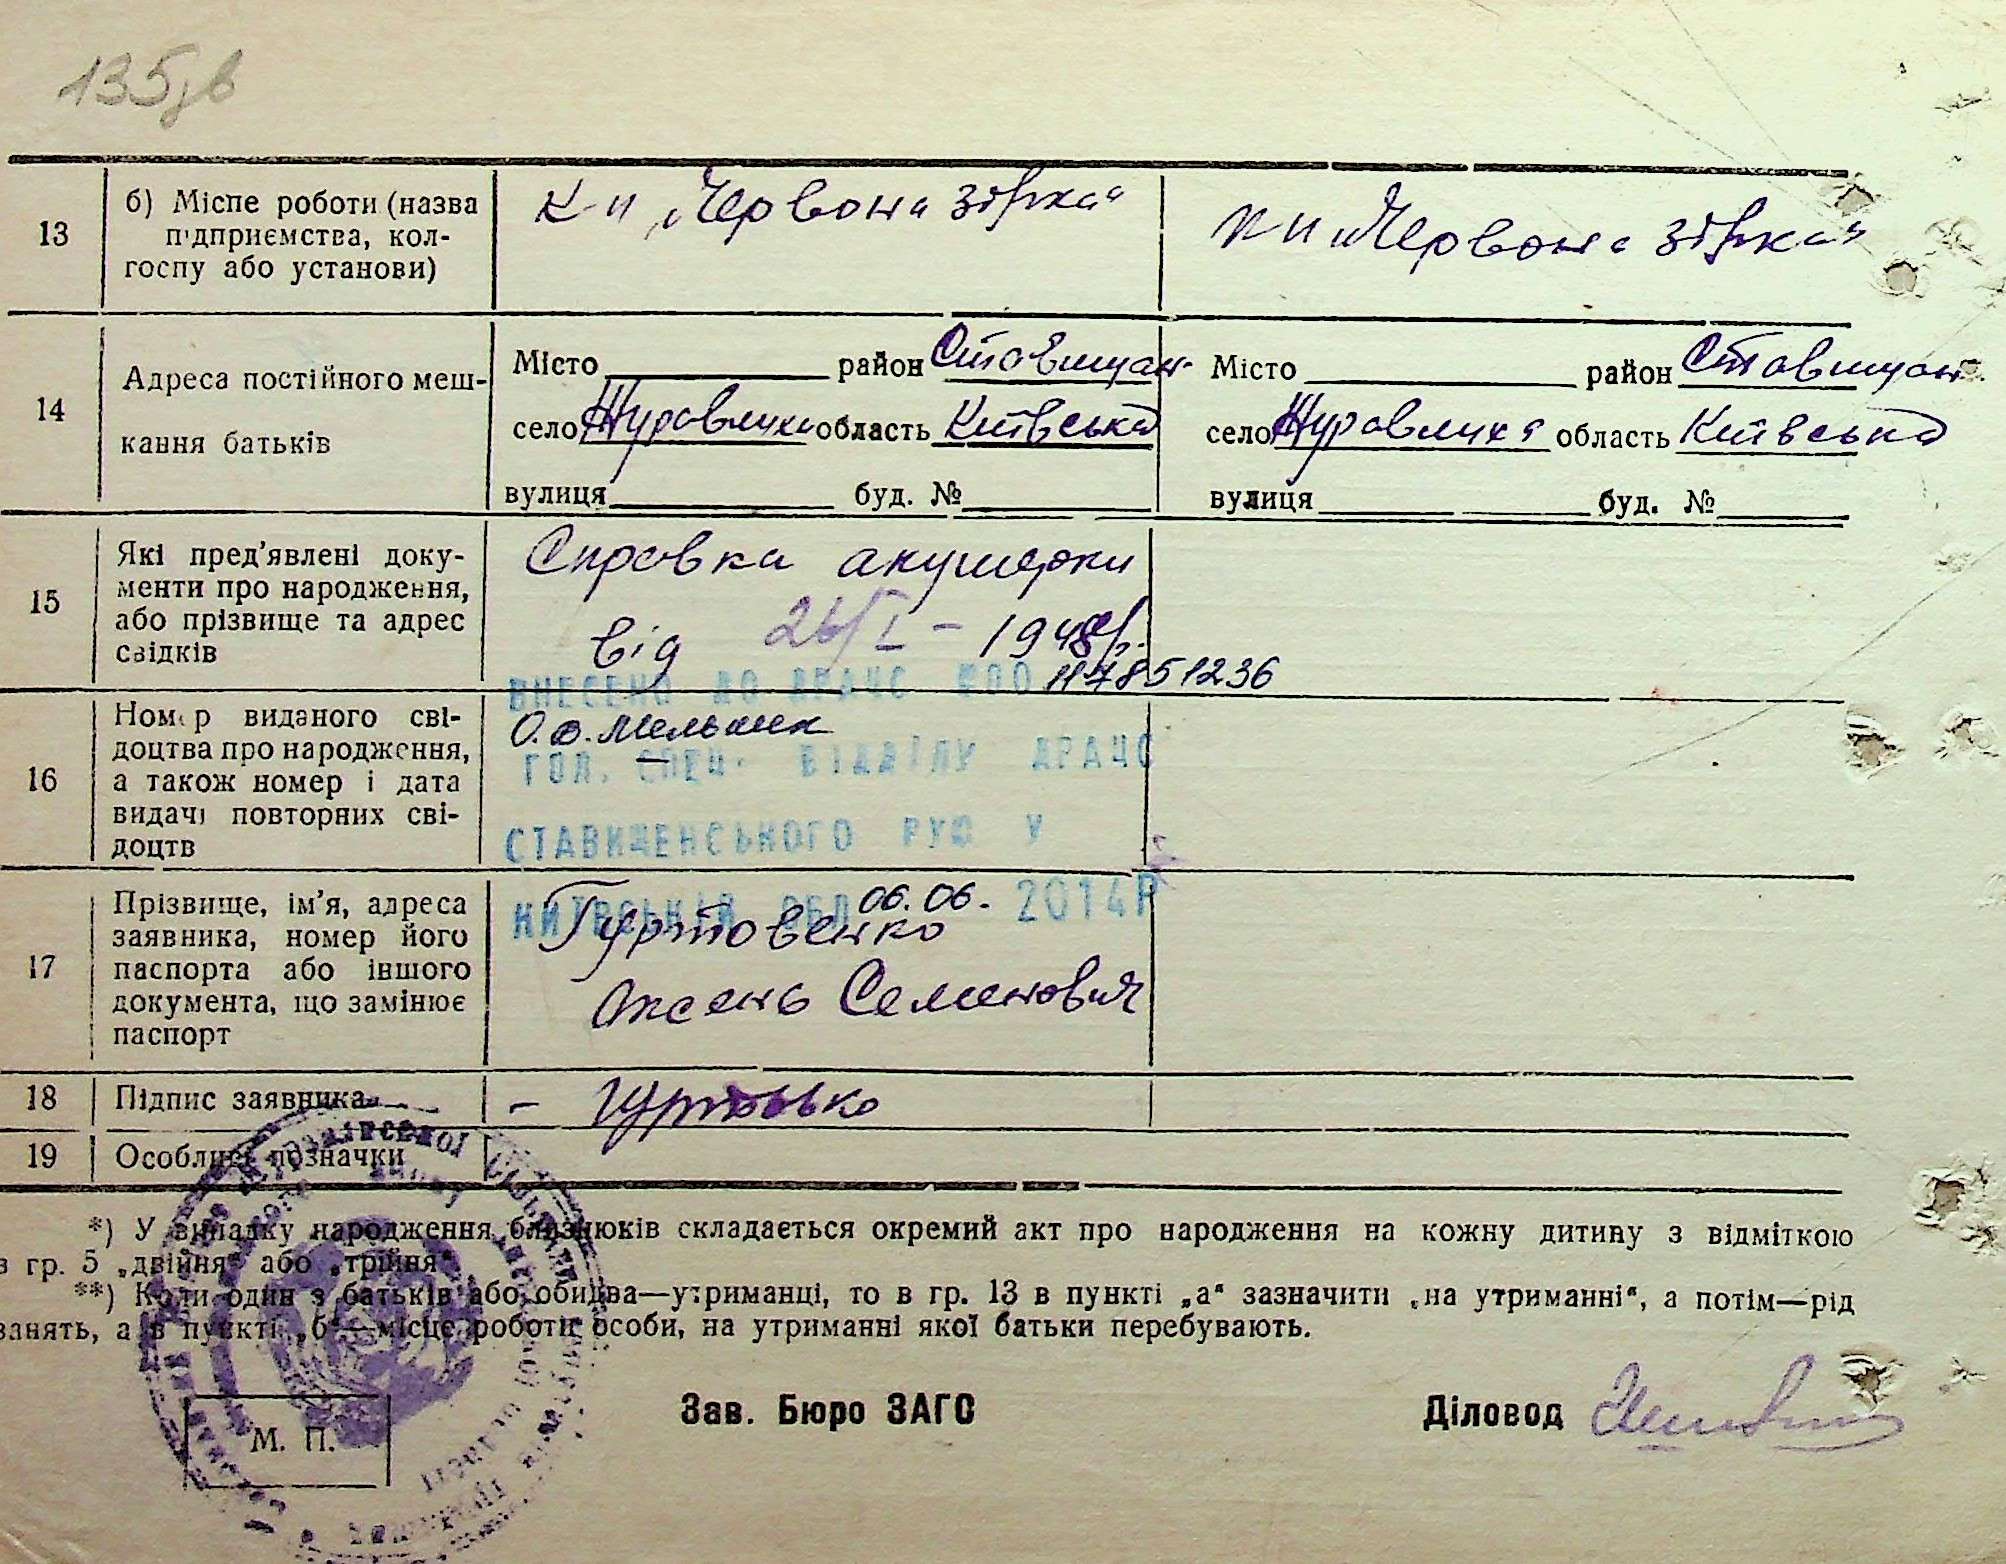 135зв
13
б) Місце роботи (назва
підприємства, кол-
госпу або установи)
К-п „Червона зірка“
к-п „Червона зірка“
14
Адреса постійного меш-
кання батьків
Місто район Ставищан.
село Журавлиха область Київська
вулиця буд. №
Місто район Ставищан.
село Журавлиха область Київська
вулиця буд. №
15
Які пред'явлені доку-
менти про народження,
або прізвище та адрес
свідків
Справка акушерки
від 26/I – 1948р.
ВНЕСЕНО ДО ДРАЦС 00117851236
16
Номер виданого сві-
доцтва про народження,
а також номер і дата
видачі повторних сві-
доцтв
О.В. Мельник
ГОЛ. СПЕЦ. ВІДДІЛУ ДРАЦС
СТАВИЩЕНСЬКОГО РУЮ У
КИЇВСЬКІЙ ОБЛ 06.06. 2014Р
17
Прізвище, ім'я, адреса
заявника, номер його
паспорта або іншого
документа, що замінює
паспорт
Гуртовенко
Семенович
18
Підпис заявника
19
Особливі позначки
*) У випадку народження близнюків складається окремий акт про народження на кожну дитину з відміткою
в гр. 5 „двійня“ або „трійня“.
**) Коли один з батьків або обидва—утриманці, то в гр. 13 в пункті „а“ зазначити „на утриманні“, а потім—рід
занять, а в пункті „б“—місце роботи особи, на утриманні якої батьки перебувають.
М. П.
Зав. Бюро ЗАГС
Діловод